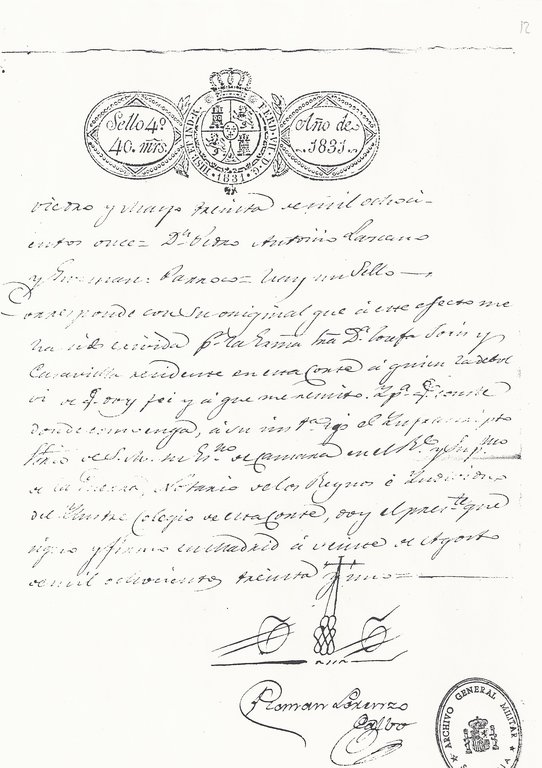 12
Sello 4º
40. mrs.
HISP. ET IND. R. FERD. VII. D. G.
· 1831 ·
Año de
1831.
viedro y Mayo treinta de mil ochoci-
entos once = Dn. Pedro Antonio Lascano
y Guzman: Parroco = Hay un Sello
Corresponde con su original que á este efecto me
ha sido exivida pr. la Exma. Sra. Da. Josefa Soria y
residente en esta Corte á quien la debol
vi de q. doy fee y á que me remito. Y pa. q. conste
donde convenga, á su insta. yo el Infrascripto
Ssrio de S. M. su Esno. de Camara en el Rl. y Supmo
de la Guerra, Notario de los Reynos é Individuo
del Ilustre Colegio de esta Corte, doy el preste. que
signo y firmo en Madrid á veinte de Agosto
de mil ochocientos treinta y uno =
Roman Lorenzo
Calbo
ARCHIVO GENERAL MILITAR